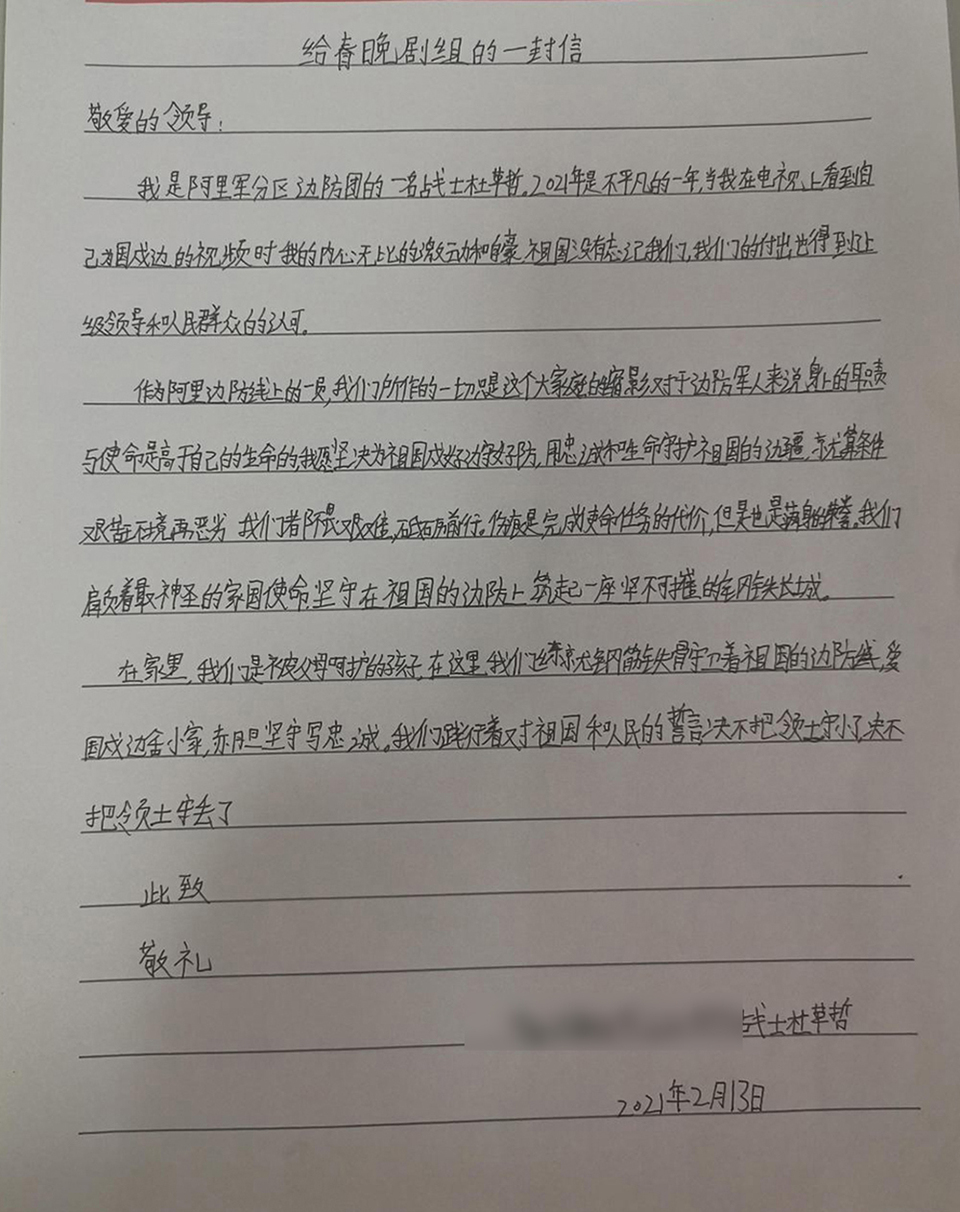 给春晚剧组的一封信
敬爱的领导：
我是阿里军分区边防团的一名战士杜革哲。2021年是不平凡的一年，当我在电视上看到自
己为国戍边的视频时我的内心无比的激动和自豪，祖国没有忘记我们，我们的付出也得到了上
级领导和人民群众的认可。
作为阿里边防线上的一员，我们所作的一切只是这个大家庭的缩影，对于边防军人来说身上的职责
与使命是高于自己的生命的，我愿坚决为祖国戍好边守好防，用忠诚和生命守护祖国的边疆，就算条件
艰苦环境再恶劣 我们都不畏艰难，砥砺前行。伤痕是完成使命任务的代价，但是也是满身的荣誉。我们
肩负着最神圣的家国使命，坚守在祖国的边防上筑起一座坚不可摧的钢铁长城。
在家里，我们是被父母呵护的孩子，在这里，我们用钢筋铁骨守卫着祖国的边防线，爱
国戍边舍小家，赤胆坚守写忠诚。我们践行着对祖国和人民的誓言决不把领土守小了，决不
把领土守丢了
此致
敬礼
战士杜革哲
2021年2月13日